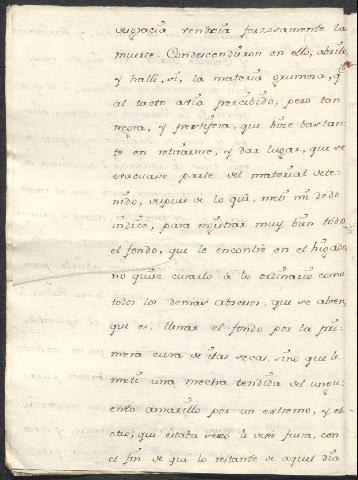 desgracia vendria forzosamente la
muerte. Condescendieron en ello; abrilo,
y hallè, si, la materia grumma, q̃
al tacto avia percibido; pero tan
negra, y pestifera, que hize bastan-
te en retirarme, y dar lugar, que se
evacuase parte del material dete-
nido, despues de lo què, metì mi dedo
indice, para registrar muy bien todo
el fondo, que le encontrè en el higado,
no quise curarlo à lo ordinario como
todos los demàs abscesos, que se abren,
que es, llenar el fondo por la pri-
mera cura de ilas secas, sino que le
metì una mecha tendida del ungu-
ento amarillo por un extremo, y el
otro, que estaba seco le dexè fuera, con
el fin de que lo restante de aquel dia